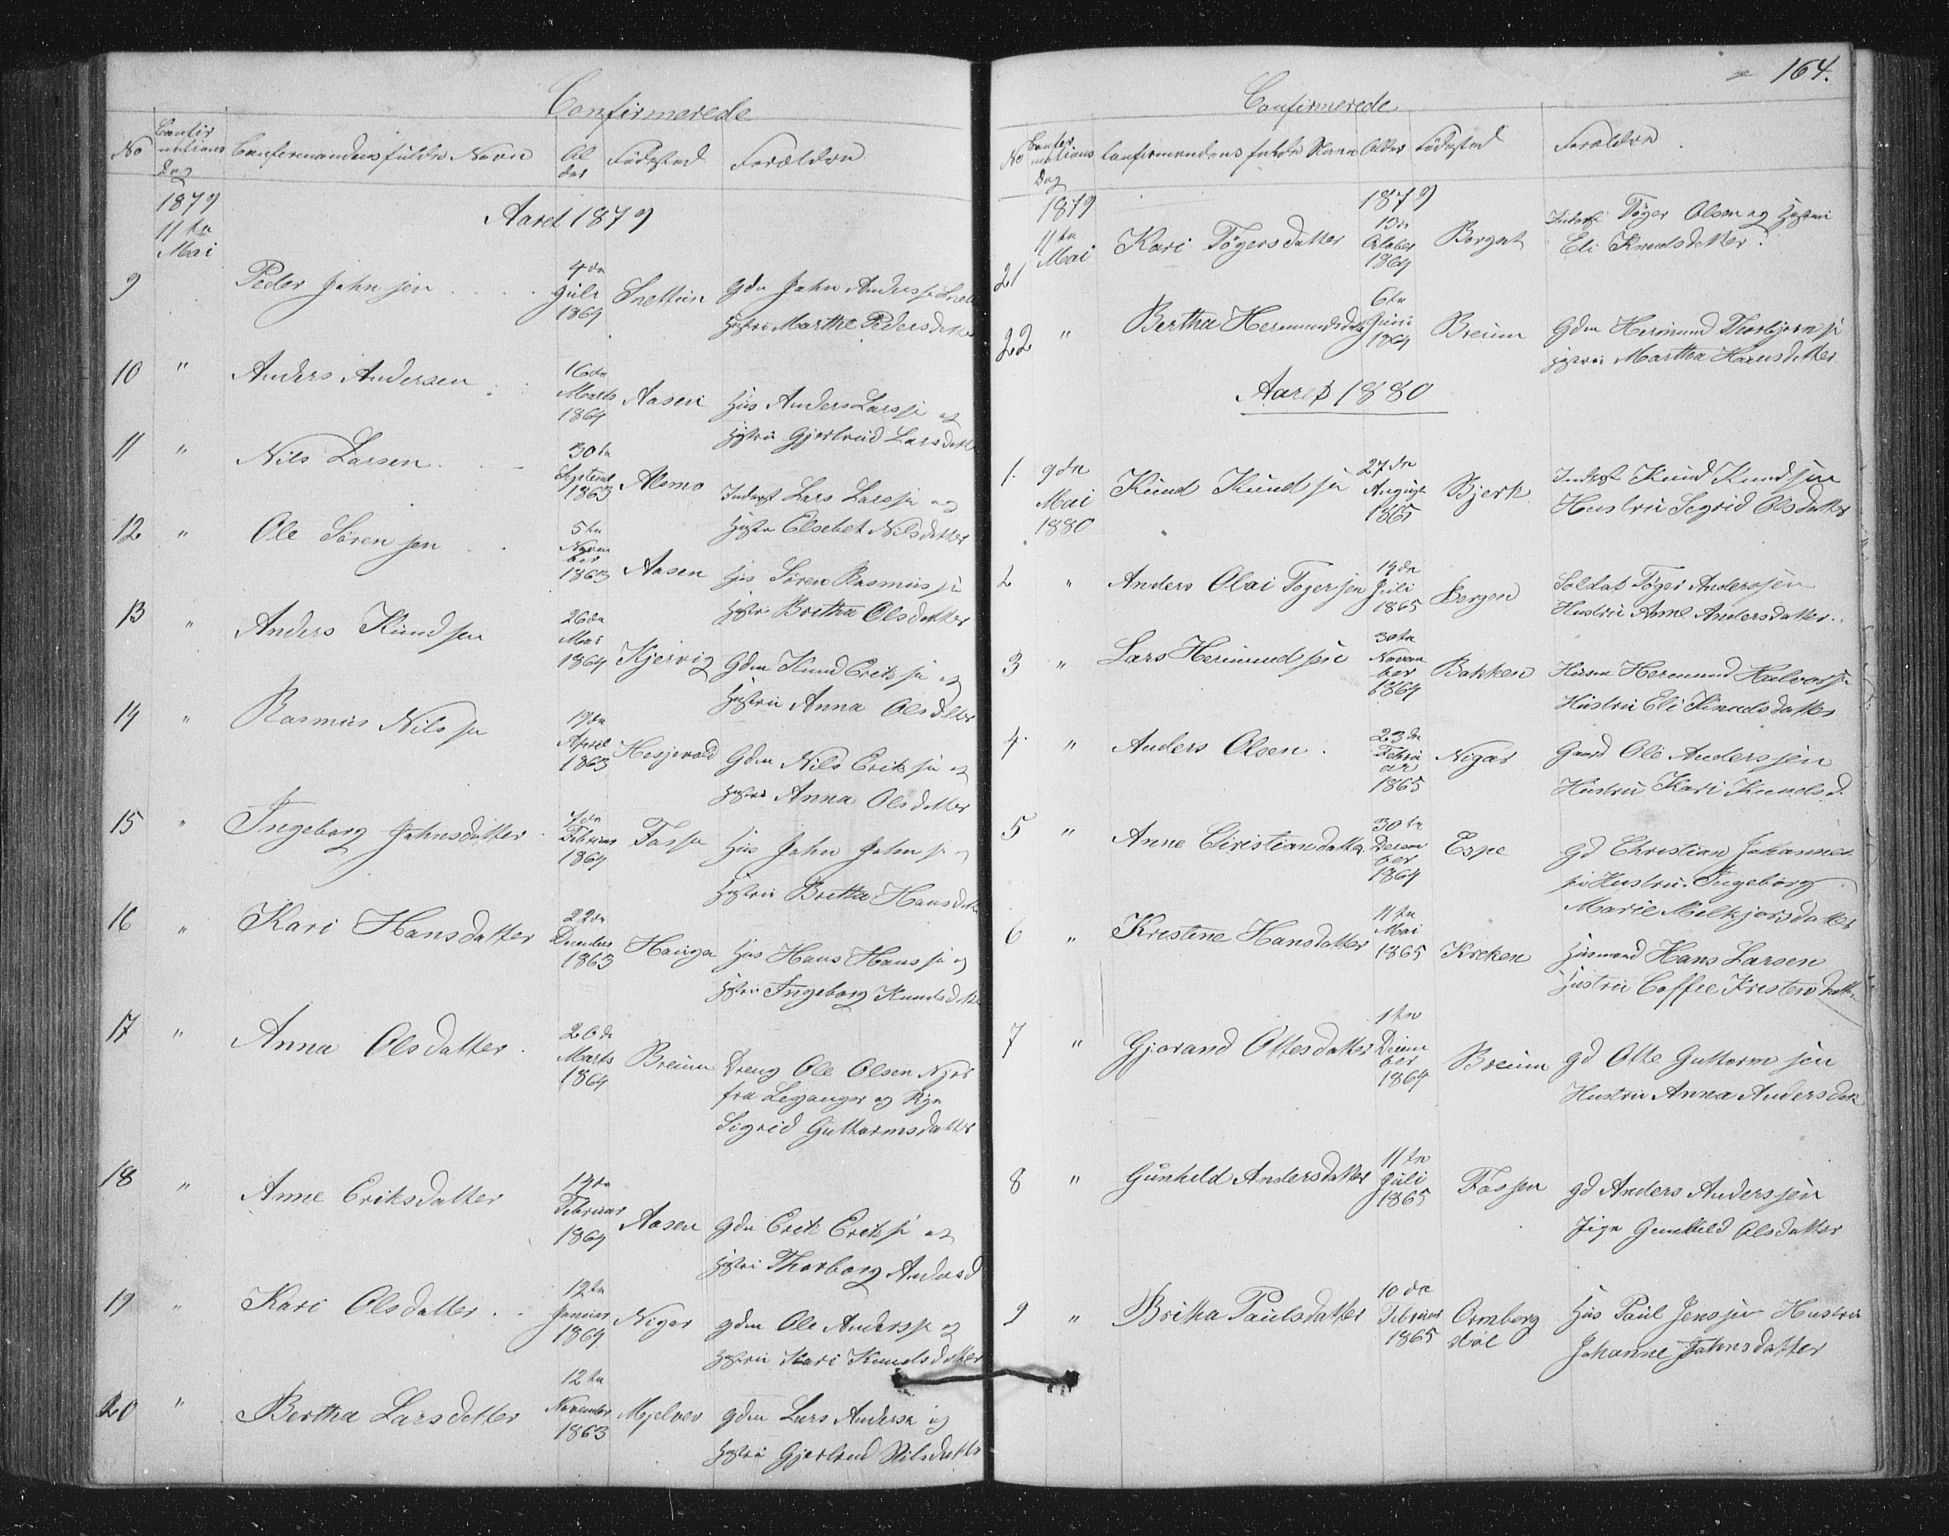 Confirmerede
No
Confir
mations
Dag
Confirmandens fulde Navn
Al
der
Fødested
Forældre
1879
11te
Mai
Aaret 1879
9 Peder Johnsen 4de Juli 1864 Snettun Gdm John Anderss
Hustru Marthe Pedersdatter
10 " Anders Andersen 16de Marts 1864 Aasen Hus Anders Larss og
Hustru Gjertrud Larsdatt
11 " Nils Larsen 30te Septemb 1863 Alsmo Inderst Lars Larsse og
Hustru Elsebet Nilsdatter
12 " Ole Sørensen 5te November 1863 Aasen Hus Søren Rasmussen
Hustru Brithe Olsdatter
13 " Anders Knudsen 26de Mai 1864 Kjervig Gdm Knud Eriks og
Hustru Anna Olsdatter
14 " Rasmus Nilsen 19de April 1863 Hesjevold Gdm Nils Eriks og
Hustru Anna Olsdatter
15 " Ingeborg Johnsdatter 4de Februar 1864 Fossa Hus John Johns
Hustru Britha Hansdatt
16 " Kari Hansdatter 22de December 1863 Hauga Hus Hans Hans og
Hustru Ingeborg Knudsdatt
17 " Anna Olsdatter 26de Marts 1864 Breum Dreng Ole Olsen Njøs
fra Leganger og Pige
Sigrid Guttormsdatter
18 " Anne Eriksdatter 14de Februar 1864 Aasen Gdm Erik Eriks og
Hustru Thorborg Andersd
19 " Kari Olsdatter 12te Januar 1864 Nigar Gdm Ole Anderss og
Hustru Kari Knudsdatter
20 " Bertha Larsdatter 12te November 1863 Mjelvær Gdm Lars Anders og
Hustru Gjertrud Nilsdatter
164.
Confirmerede
No
Confir
mations
Dag
Confirmandens fulde Navn
Alder
Fødested
Forældre
1879
1879
21 11te Mai Kari Tøgersdatter 13de Octobe 1864 Borgat Inderst Tøger Olsen og Hustru
Eli Knudsdatter
22 " Bertha Hermundsdatt 6te Juni 1864 Breum Gdm Hermund Thorbjørns
Hustru Martha Hansdatter
Aaret 1880
1. 9de Mai 1880 Knud Knudsen 27de August 1865 Bjerk Inderst Knud Knudsen
Hustru Segrid Olsdatter
2 " Anders Olai Tøgersen 19de Juli 1865 Bergen Soldat Tøger Anderssen
Hustru Anne Andersdatter
3 " Lars Hermundsen 30te November 1864 Bakken Husm Hermund Halvors
Hustru Eli Knudsdatter
4 " Anders Olsen 23de Februar 1865 Nigar Gaard Ole Anderssen
Hustru Kari Knudsd.
5 " Anne Christiansdatter 30te December 1864 Espe gd Christian Johannes
sen Hustru Ingeborg
Marie Melkjorsdatter
6 " Kristene Hansdatter 11te Mai 1865 Kreken Husmand Hans Larsen
Hustru Coffie Kristensdatter
7 " Gjørand Ottesdatter 1te December 1864 Breum gd Otte Guttormsen
Hustru Anna Andersdatt
8 " Gunhild Andersdatter 11te Juli 1865 Fossen gd Anders Anderssen
Pige Gunhild Olsdatter
9 " Britha Paulsdatter 10de Februar 1865 Ormberg
støl Hus Paul Jenssen Hustru
Johanne Johnsdatter